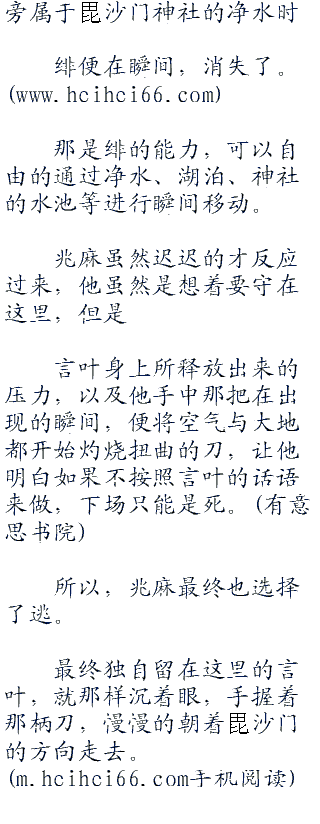 旁属于毘沙门神社的净水时
绯便在瞬间，消失了。
(www.hcihci66.com)
那是绯的能力，可以自
由的通过净水、湖泊、神社
的水池等进行瞬间移动。
兆麻虽然迟迟的才反应
过来，他虽然是想着要守在
这里，但是
言叶身上所释放出来的
压力，以及他手中那把在出
现的瞬间，便将空气与大地
都开始灼烧扭曲的刀，让他
明白如果不按照言叶的话语
来做，下场只能是死。(有意
思书院)
所以，兆麻最终也选择
了逃。
最终独自留在这里的言
叶，就那样沉着眼，手握着
那柄刀，慢慢的朝着毘沙门
的方向走去。
(m.hcihci66.com手机阅读)